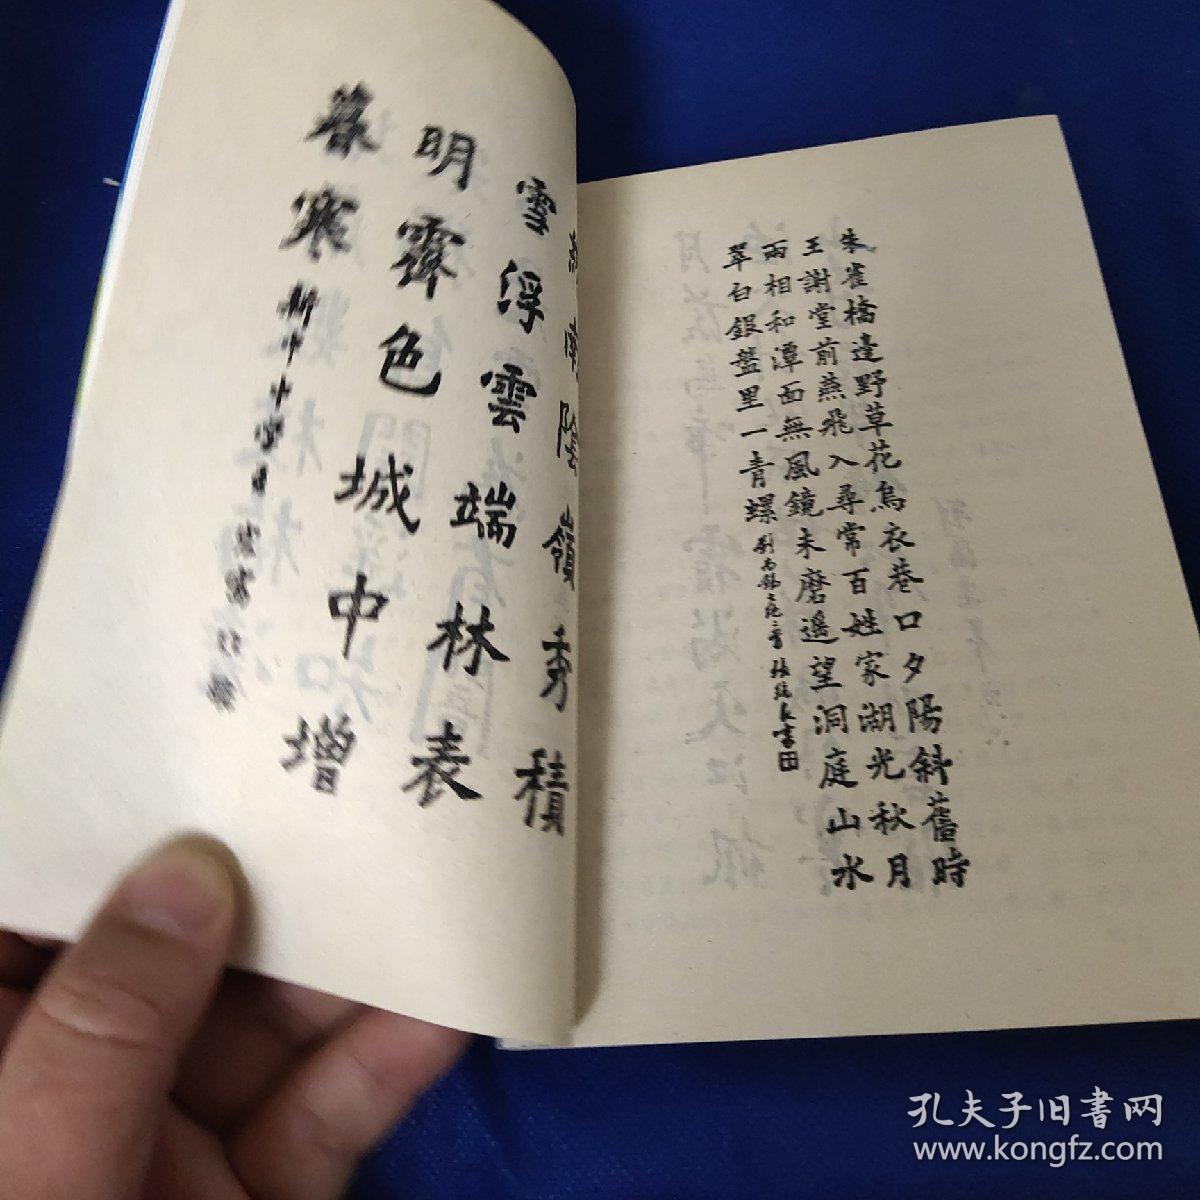 終南陰嶺秀積
雪浮雲端林表
明霽色城中增
暮寒
朱雀橋邊野草花烏衣巷口夕陽斜舊時
王謝堂前燕飛入尋常百姓家湖光秋月
兩相和潭面無風鏡未磨遙望洞庭山水
翠白銀盤里一青螺 劉禹錫
孔夫子旧書网
www.kongfz.com